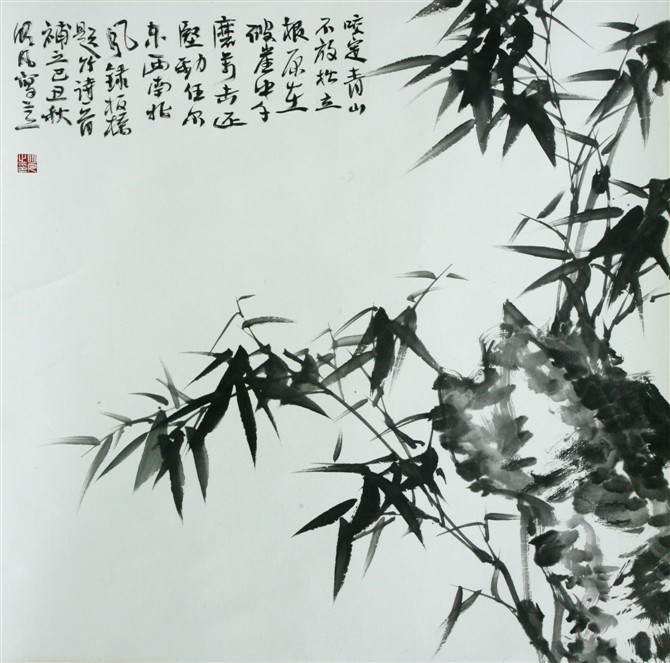 咬定青山
不放松立
根原在
破崖中千
磨萬击还
堅劲任尔
东西南北
风録板橋
题竹诗首
補之己丑秋
风寫之